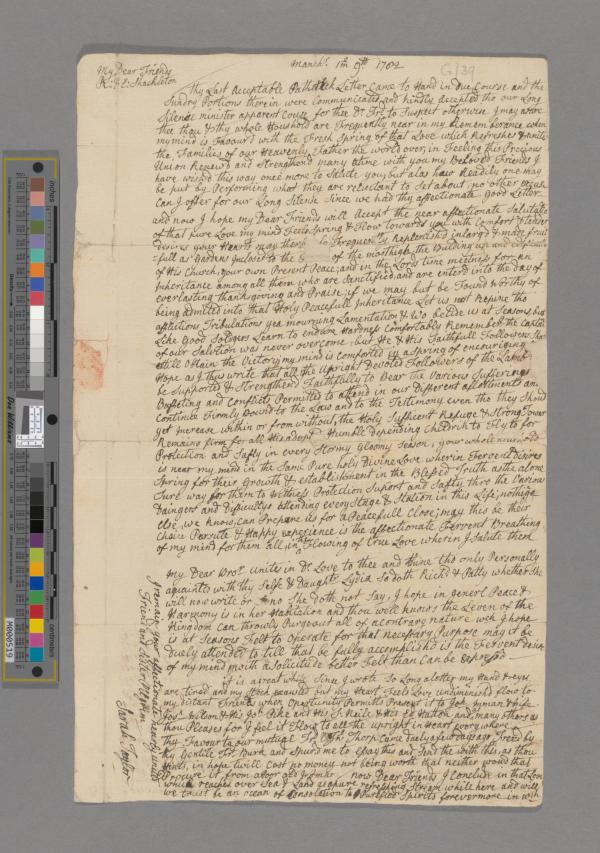 March 1th 9th 1782
G/39
My Dear Friends
R: & E: Shackleton
Thy Last Acceptable Letter Came to Hand in Due Course and the
Sundry Portions therein were Communicated and kindly accepted tho our Long
Silence minister apparent Couse for thee Dr. Frd to Suspect otherwise I may assure
thee thou & thy whole Household are Frequently near in my Remembrance when
my mind is Favourd with the Fresh Spring of that Love which Refreshes & unites
the Families of our Heavenly Father the world over, in Feeling this Precious
Union Renewd and Strengthend many a time with you my Beloved Friends I
have wish'd this way once more to Salute you, but alas how Readily one may
be put by Performing what they are reluctant to Set about, no other Excuse
Can I offer for our Long Silence Since we had thy affectionate Good Letter
and now I hope my Dear Friends will Accept the near affectionate Salutation
of that pure Love my mind Feels Spring & Flow towards you with Comfort & tender
desires your Hearts may there Frequently Replenished inlarg'd & made fruit
=full as Gardens inclosed to the of the most high, the Building up and
of His Church, your own Present Peace, and in the Lords time meetness for an
Inheritance among all them who are Sanctified and are enterd into the Day of
everlasting thanksgiving and Praise; if we may but be Found worthy of
being admited into that Holy Peacefull Inheritance Let us not Repine tho
aflictions Tribulations yea mourning Lamentation & Wo betide us at Seasons, but
Like Good Soldiers Learn to endure Hardness comfortably Remember the Captain
of our Salvation was never overcome, but He & His Faithfull Followers
Still obtain the Victory, my mind is comforted in a Spring of encouraging
Hope as I thus write that all the upright Devoted Followers of the Lamb
be Supported & Strengthend Faithfully to Bear the Various Sufferings
Bufeting and Conflicts Permitted to attend in our Different allotments and
Continue Firmly Bound to the Law and to the Testimony even tho they Should
yet Increase within or from without, the Holy Sufficent Refuge & Strong Tower
Remains firm for all His Humble depending Children to Fly to for
Protection and Safty in every Stormy Gloomy Season, your whole
is near my mind in the Same Pure holy Divine Love wherein Fervent Desires
Spring for their Growth & establishment in the Blessed Truth as the alone
Sure way for them to Witness Protection Suport and Safty thro the Various
Daingers and Dificultys attending every Stage & Station in this Life, nothing
else, we know, can Prepare us for a Peacefull Close; may this be their
Choice Persute & Happy experience is the affectionate Fervent Breathing
of my mind for them all, in the Flowing of true Love wherein I Salute them
My Dear Bror. Unites in Dr. Love to thee and thine tho only Personally
aquainted with thy Self & Daughr. Lydia So doth Richd. & Patty whether She
will now write or no She doth not Say, I hope in generl Peace &
Harmony is in her Habitation and thou well knows the Leven of the
Kingdom Can throwly Purge out all of a contrary nature wch. I hope
is at Seasons Felt to Operate for that necessary Purpose may it be
duely attended to till that be fully accomplished is the Fervent desire
of my mind with a Solicitude better Felt than Can be expressed
it is a great while Since I wrote So Long a letter my Hand & eyes
are tired and my Stock exausted but my Heart Feels Love undiminishd flow to
my distant Friends when Opportunity Permits Present it to Joh. Wyman & Wife
Josh. Wilson & His Jo: Pike and His S: Neile & His E: Hatton and many others as
thou Pleases for I feel it Flow to all the upright in Heart every where
thy Favour to our mutual Frd. Thorp Came Safely a few days ago Freed by
my Gentile Frd. Burk and Spur'd me to essay this and Send the with this, as thou
hints, in hope twill Cost no money not being worth that neither would that
Procure it from a poor old Farmer. now Dear Friends I Conclude in that Love
which reaches over Sea & Land as a pure refreshing Stream while here and will
we trust be an ocean of Consolation to Purified Spirits forevermore in wch.
I remain your affectionate nearly united
Friend and Sister
Sarah Taylor